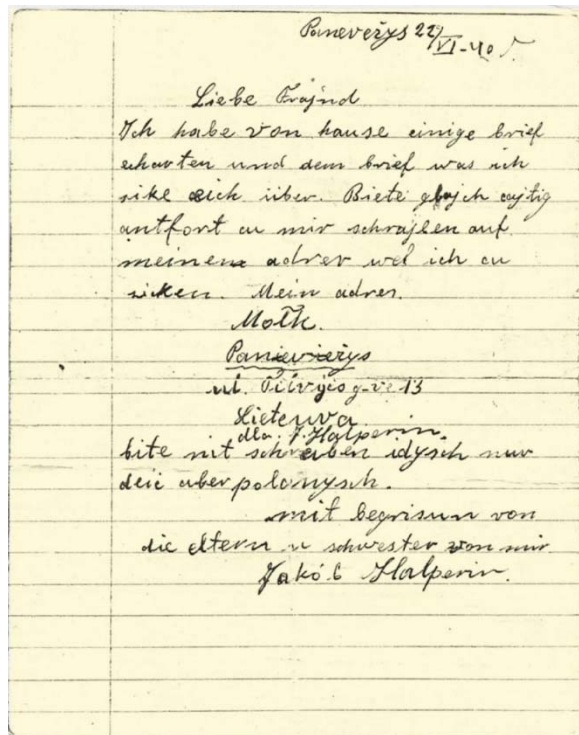 Panevežys 22/VI-40 r.
Liebe Frajnd
Ich habe von hause einige brief
erharten und dem brief was ich
sike dich über. Biete glajch cajtig
antfort cu mir schrajben auf
meinem adres wel ich cu
siken. Mein adres.
Motk.
Panieviežys
ul. g-ve 13
Lietuva
dla J. Halperin.
bite nit schreiben idysch nur
deić aber polonysch.
mit begrisun von
die eltern u schwester von mir
Jakób Halperin.